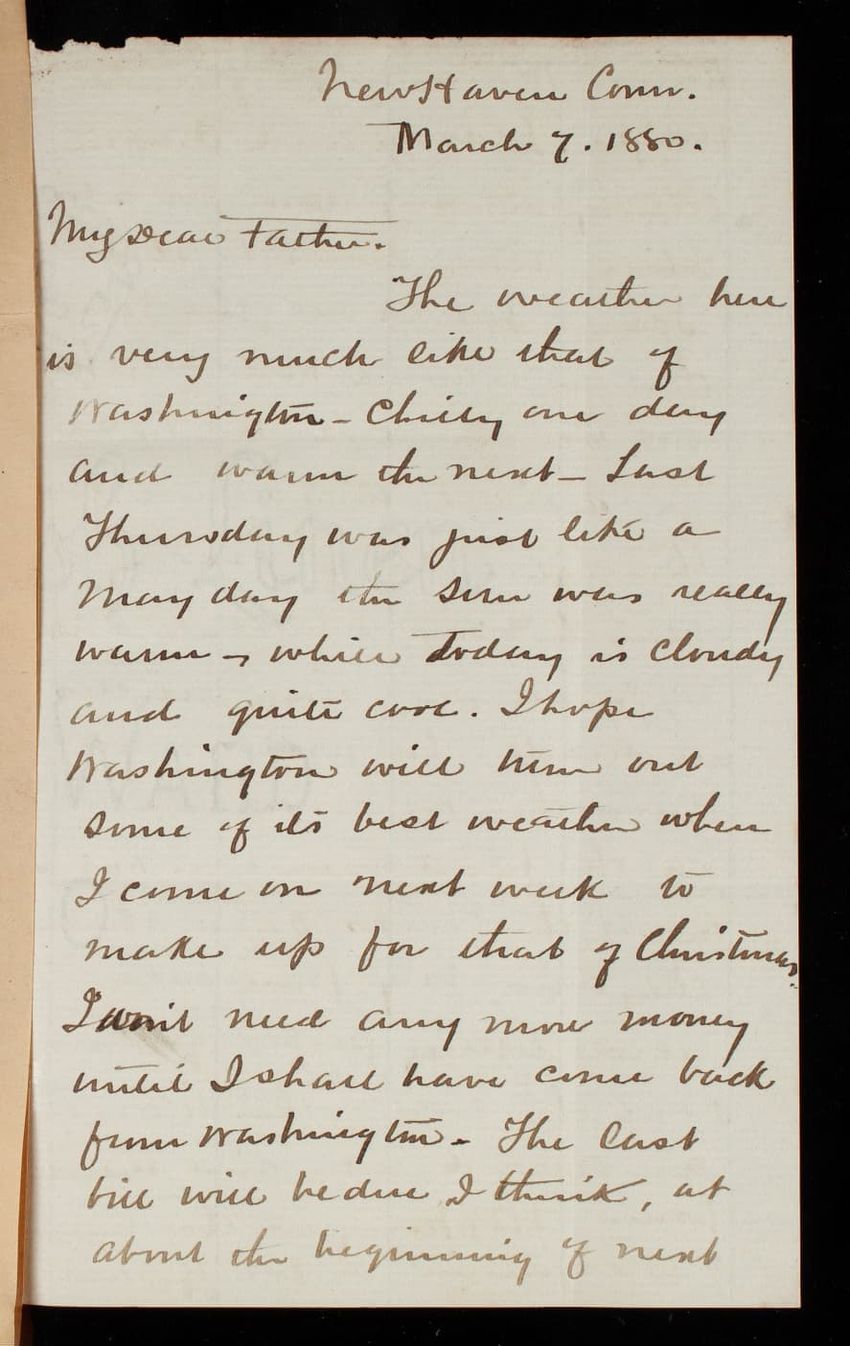 New Haven Conn.
March 7. 1880.
My Dear Father.
The weather here
is very much like that of
Washington - Chilly one day
and warm the next - Last
Thursday was just like a
May day the sun was really
warm -, while today is cloudy
and quite cool. I hope
Washington will turn out
some of its best weather when
I come on next week to
make up for that of Christmas.
I don't need any more money
until I shall have come back
from Washington - The last
bill will be due I think, at
about the beginning of next